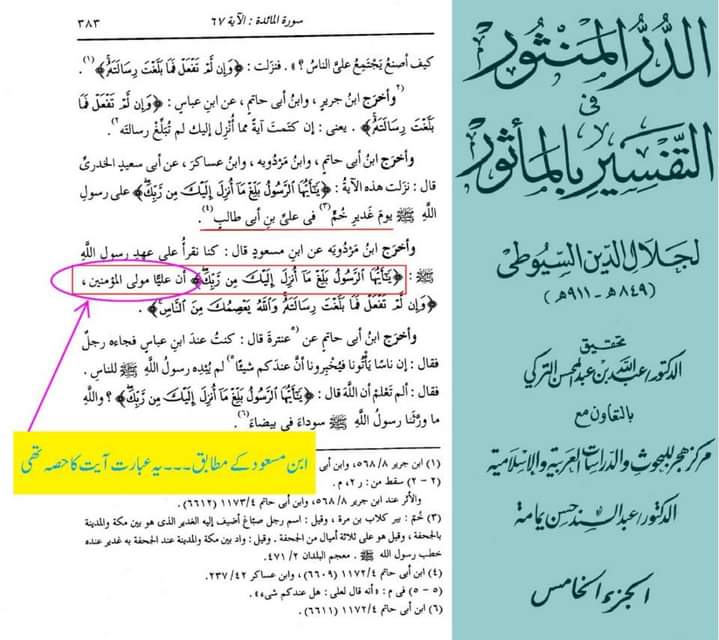 سورة المائدة : الآية ٦٧
٣٨٣
كيف أصنعُ يَجْتَمِعُ علىَّ الناسُ ؟» . فنزلت : ﴿وَإِن لَّمْ تَفْعَلْ فَمَا بَلَّغْتَ رِسَالَتَهُ﴾(١) .
(٢)وأخرَج ابنُ جريرٍ ، وابنُ أبى حاتمٍ ، عن ابنِ عباسٍ : ﴿وَإِن لَّمْ تَفْعَلْ فَمَا
بَلَّغْتَ رِسَالَتَهُ﴾ . يعنى : إن كتَمتَ آيةً مما أُنْزِل إليك لم تُبَلِّغْ رسالته(٢) .
وأخرَج ابنُ أبى حاتمٍ ، وابنُ مَرْدُويه ، وابنُ عساكرَ ، عن أبى سعيدٍ الخدرىِّ
قال : نزَلت هذه الآيةُ : ﴿يَٰٓأَيُّهَا ٱلرَّسُولُ بَلِّغْ مَآ أُنزِلَ إِلَيْكَ مِن رَّبِّكَ﴾ على رسولِ
اللَّهِ ﷺ يومَ غَديرِ خُمٍّ(٣) فى علىِّ بنِ أبى طالبٍ(٤) .
وأخرَج ابنُ مَرْدُويَه عن ابنِ مسعودٍ قال : كنا نقرأُ على عهدِ رسولِ اللَّهِ
ﷺ : ﴿يَٰٓأَيُّهَا ٱلرَّسُولُ بَلِّغْ مَآ أُنزِلَ إِلَيْكَ مِن رَّبِّكَ﴾ أن عليًّا مولى المؤمنين ،
﴿وَإِن لَّمْ تَفْعَلْ فَمَا بَلَّغْتَ رِسَالَتَهُ وَٱللَّهُ يَعْصِمُكَ مِنَ ٱلنَّاسِ﴾ .
وأخرَج ابنُ أبى حاتمٍ عن عنترةَ قال : كنتُ عندَ ابنِ عباسٍ فجاءه رجلٌ
فقال : إن ناسًا يأْتُونا فيُخْبِرونا أن عندَكم شيئًا(٥) لم يُبْدِه رسولُ اللَّهِ ﷺ للناسِ .
فقال : ألم تَعْلَمْ أن اللَّهَ قال : ﴿يَٰٓأَيُّهَا ٱلرَّسُولُ بَلِّغْ مَآ أُنزِلَ إِلَيْكَ مِن رَّبِّكَ﴾ ؟ واللَّهِ
ما ورَّثَنا رسولُ اللَّهِ ﷺ سوداءَ فى بيضاءَ(٦) .
ابن مسعود کے مطابق ۔۔۔ یہ عبارت آیت کا حصہ تھی
(١) ابن جرير ٨/ ٥٦٨، وابن أبى
(٢ - ٢) سقط من : ر ٢، م .
والأثر عند ابن جرير ٨/ ٥٦٨، وابن أبى حاتم ٤/ ١١٧٣ (٦٦١٢) .
(٣) خُمّ : بير كلاب بن مرة ، وقيل : اسم رجل صباغ أضيف إليه الغدير الذى هو بين مكة والمدينة
بالجحفة ، وقيل هو على ثلاثة أميال من الجحفة . وقيل : واد بين مكة والمدينة عند الجحفة به غدير عنده
خطب رسول الله ﷺ . معجم البلدان ٢/ ٤٧١.
(٤) ابن أبى حاتم ٤/ ١١٧٢ (٦٦٠٩) ، وابن عساكر ٤٢/ ٢٣٧.
(٥ - ٥) فى م : «أنه قال لعلى : هل عندكم شىء» .
(٦) ابن أبى حاتم ٤/ ١١٧٢ (٦٦١١) .
الدُّرُّ المَنْثُور
فى
التَّفْسِيرِ بِالمَأْثُور
لجلال الدين السيوطى
(٨٤٩هـ - ٩١١هـ)
تحقيق
الدكتور/ عبد الله بن عبد المحسن التركى
بالتعاون مع
مركز هجر للبحوث والدراسات العربية والإسلامية
الدكتور/ عبد السند حسن يمامة
الجزء الخامس